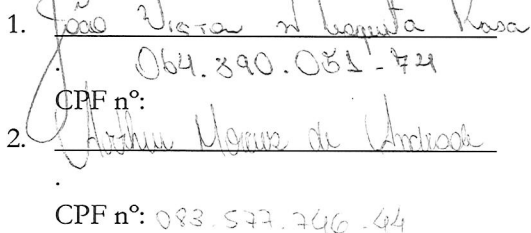 1. João Victor N Mesquita Rosa
.
064.390.051-74
CPF nº:
2. Arthur Morais de Andrade
.
CPF nº: 083.577.746-44